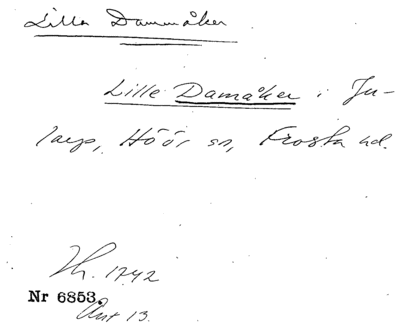 Lilla Dammåker
Lille Damåker i Ju-
larp, Höör sn, Frosta hd.
Th. 1742
Nr 6853.
Ant 13.